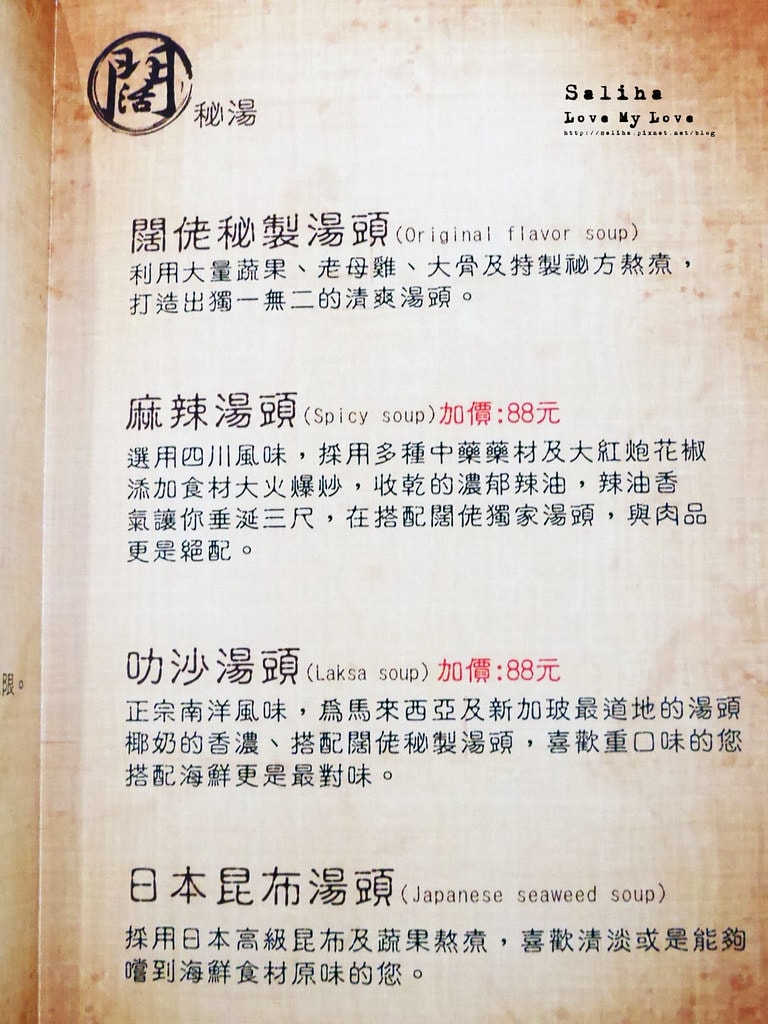 闊
秘湯
Saliha
Love My Love
http://saliha.pixnet.net/blog
闊佬秘製湯頭(Original flavor soup)
利用大量蔬果、老母雞、大骨及特製祕方熬煮，
打造出獨一無二的清爽湯頭。
麻辣湯頭(Spicy soup)加價:88元
選用四川風味，採用多種中藥藥材及大紅炮花椒
添加食材大火爆炒，收乾的濃郁辣油，辣油香
氣讓你垂涎三尺，在搭配闊佬獨家湯頭，與肉品
更是絕配。
叻沙湯頭(Laksa soup)加價:88元
正宗南洋風味，為馬來西亞及新加玻最道地的湯頭
椰奶的香濃、搭配闊佬秘製湯頭，喜歡重口味的您
搭配海鮮更是最對味。
限。
日本昆布湯頭(Japanese seaweed soup)
採用日本高級昆布及蔬果熬煮，喜歡清淡或是能夠
嚐到海鮮食材原味的您。